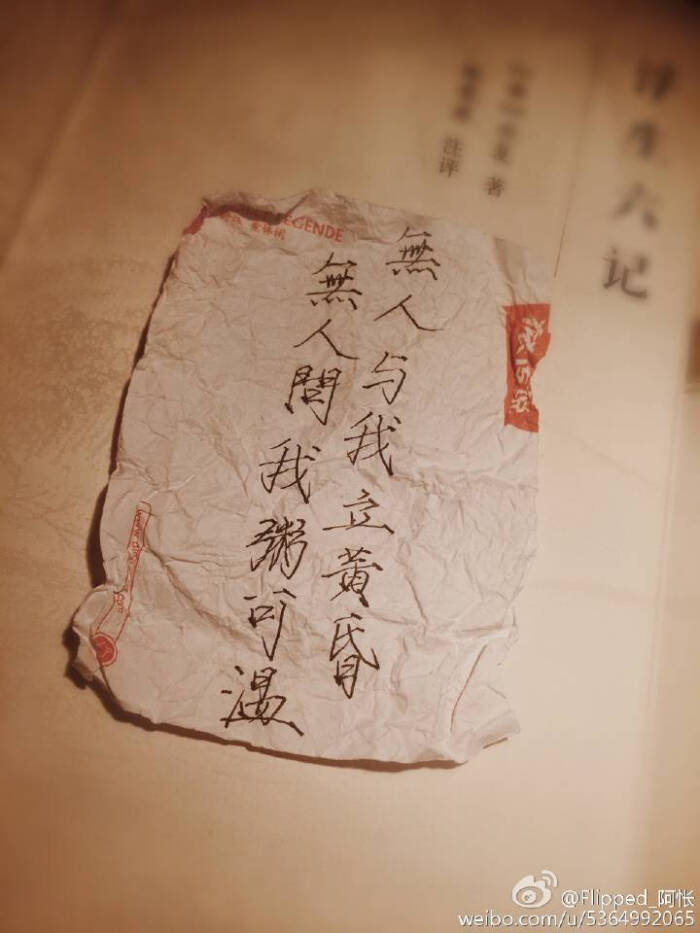 無人与我立黄昏
無人問我粥可温
记
著
注评
EGENDE
@Flipped_阿怅
weibo.com/u/5364992065